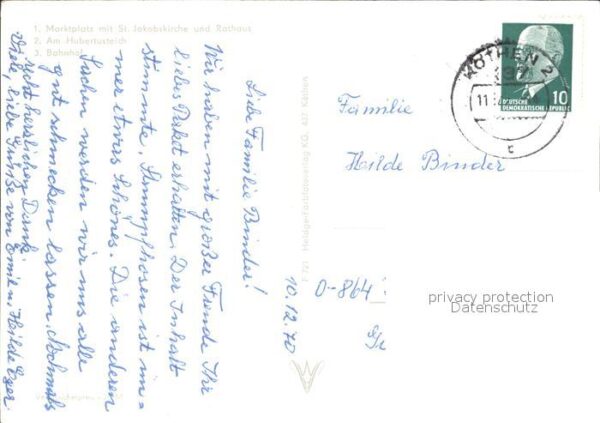 1. Marktplatz mit St. Jakobskirche und Rathaus
2. Am Hubertusteich
3. Bahnhof
10.12.70
Liebe Familie Binder!
Wir haben mit großer Freude Ihr
liebes Paket erhalten. Der Inhalt
stimmte. Strumpfhosen ist im=
mer etwas Schönes. Die anderen
Sachen werden wir uns alle
gut schmecken lassen. Nochmals
recht herzlichen Dank.
Viele, liebe Grüße von Emil u. Hilde Eger
KÖTHEN 2
437
11
c
10
DEUTSCHE
DEMOKRATISCHE REPUBLIK
Familie
Heilde Binder
O-864
Gr
privacy protection
Datenschutz